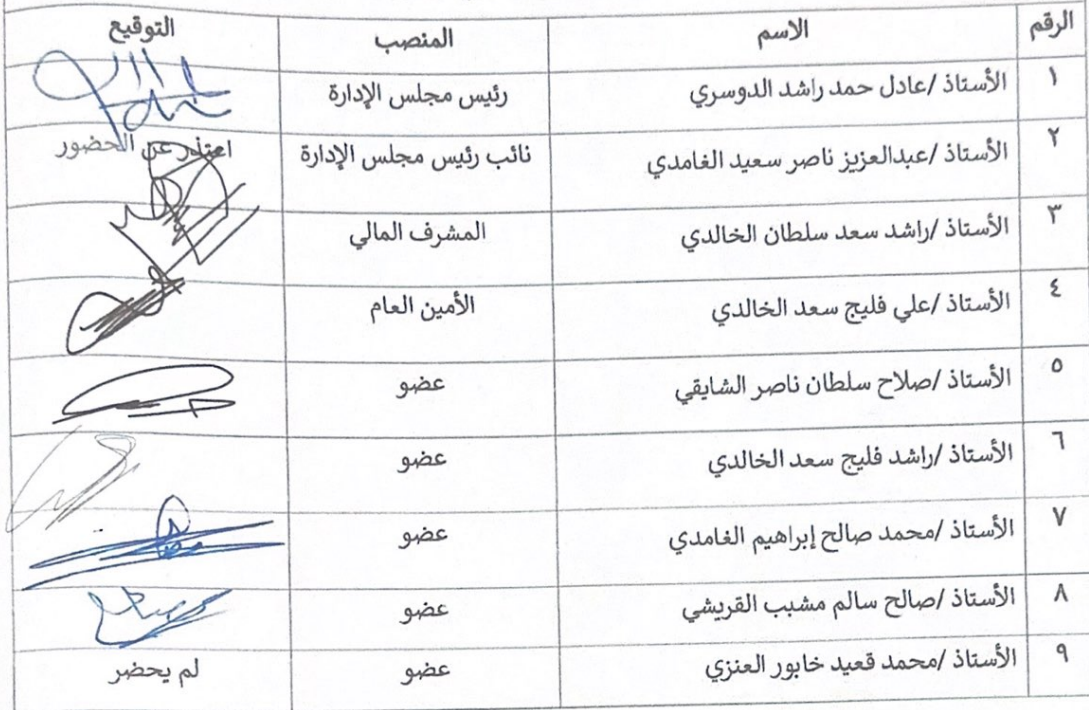 الرقم الاسم المنصب التوقيع
١ الأستاذ /عادل حمد راشد الدوسري رئيس مجلس الإدارة
٢ الأستاذ /عبدالعزيز ناصر سعيد الغامدي نائب رئيس مجلس الإدارة اعتذر عن الحضور
٣ الأستاذ /راشد سعد سلطان الخالدي المشرف المالي
٤ الأستاذ /علي فليج سعد الخالدي الأمين العام
٥ الأستاذ /صلاح سلطان ناصر الشايقي عضو
٦ الأستاذ /راشد فليج سعد الخالدي عضو
٧ الأستاذ /محمد صالح إبراهيم الغامدي عضو
٨ الأستاذ /صالح سالم مشبب القريشي عضو
٩ الأستاذ /محمد قعيد خابور العنزي عضو لم يحضر